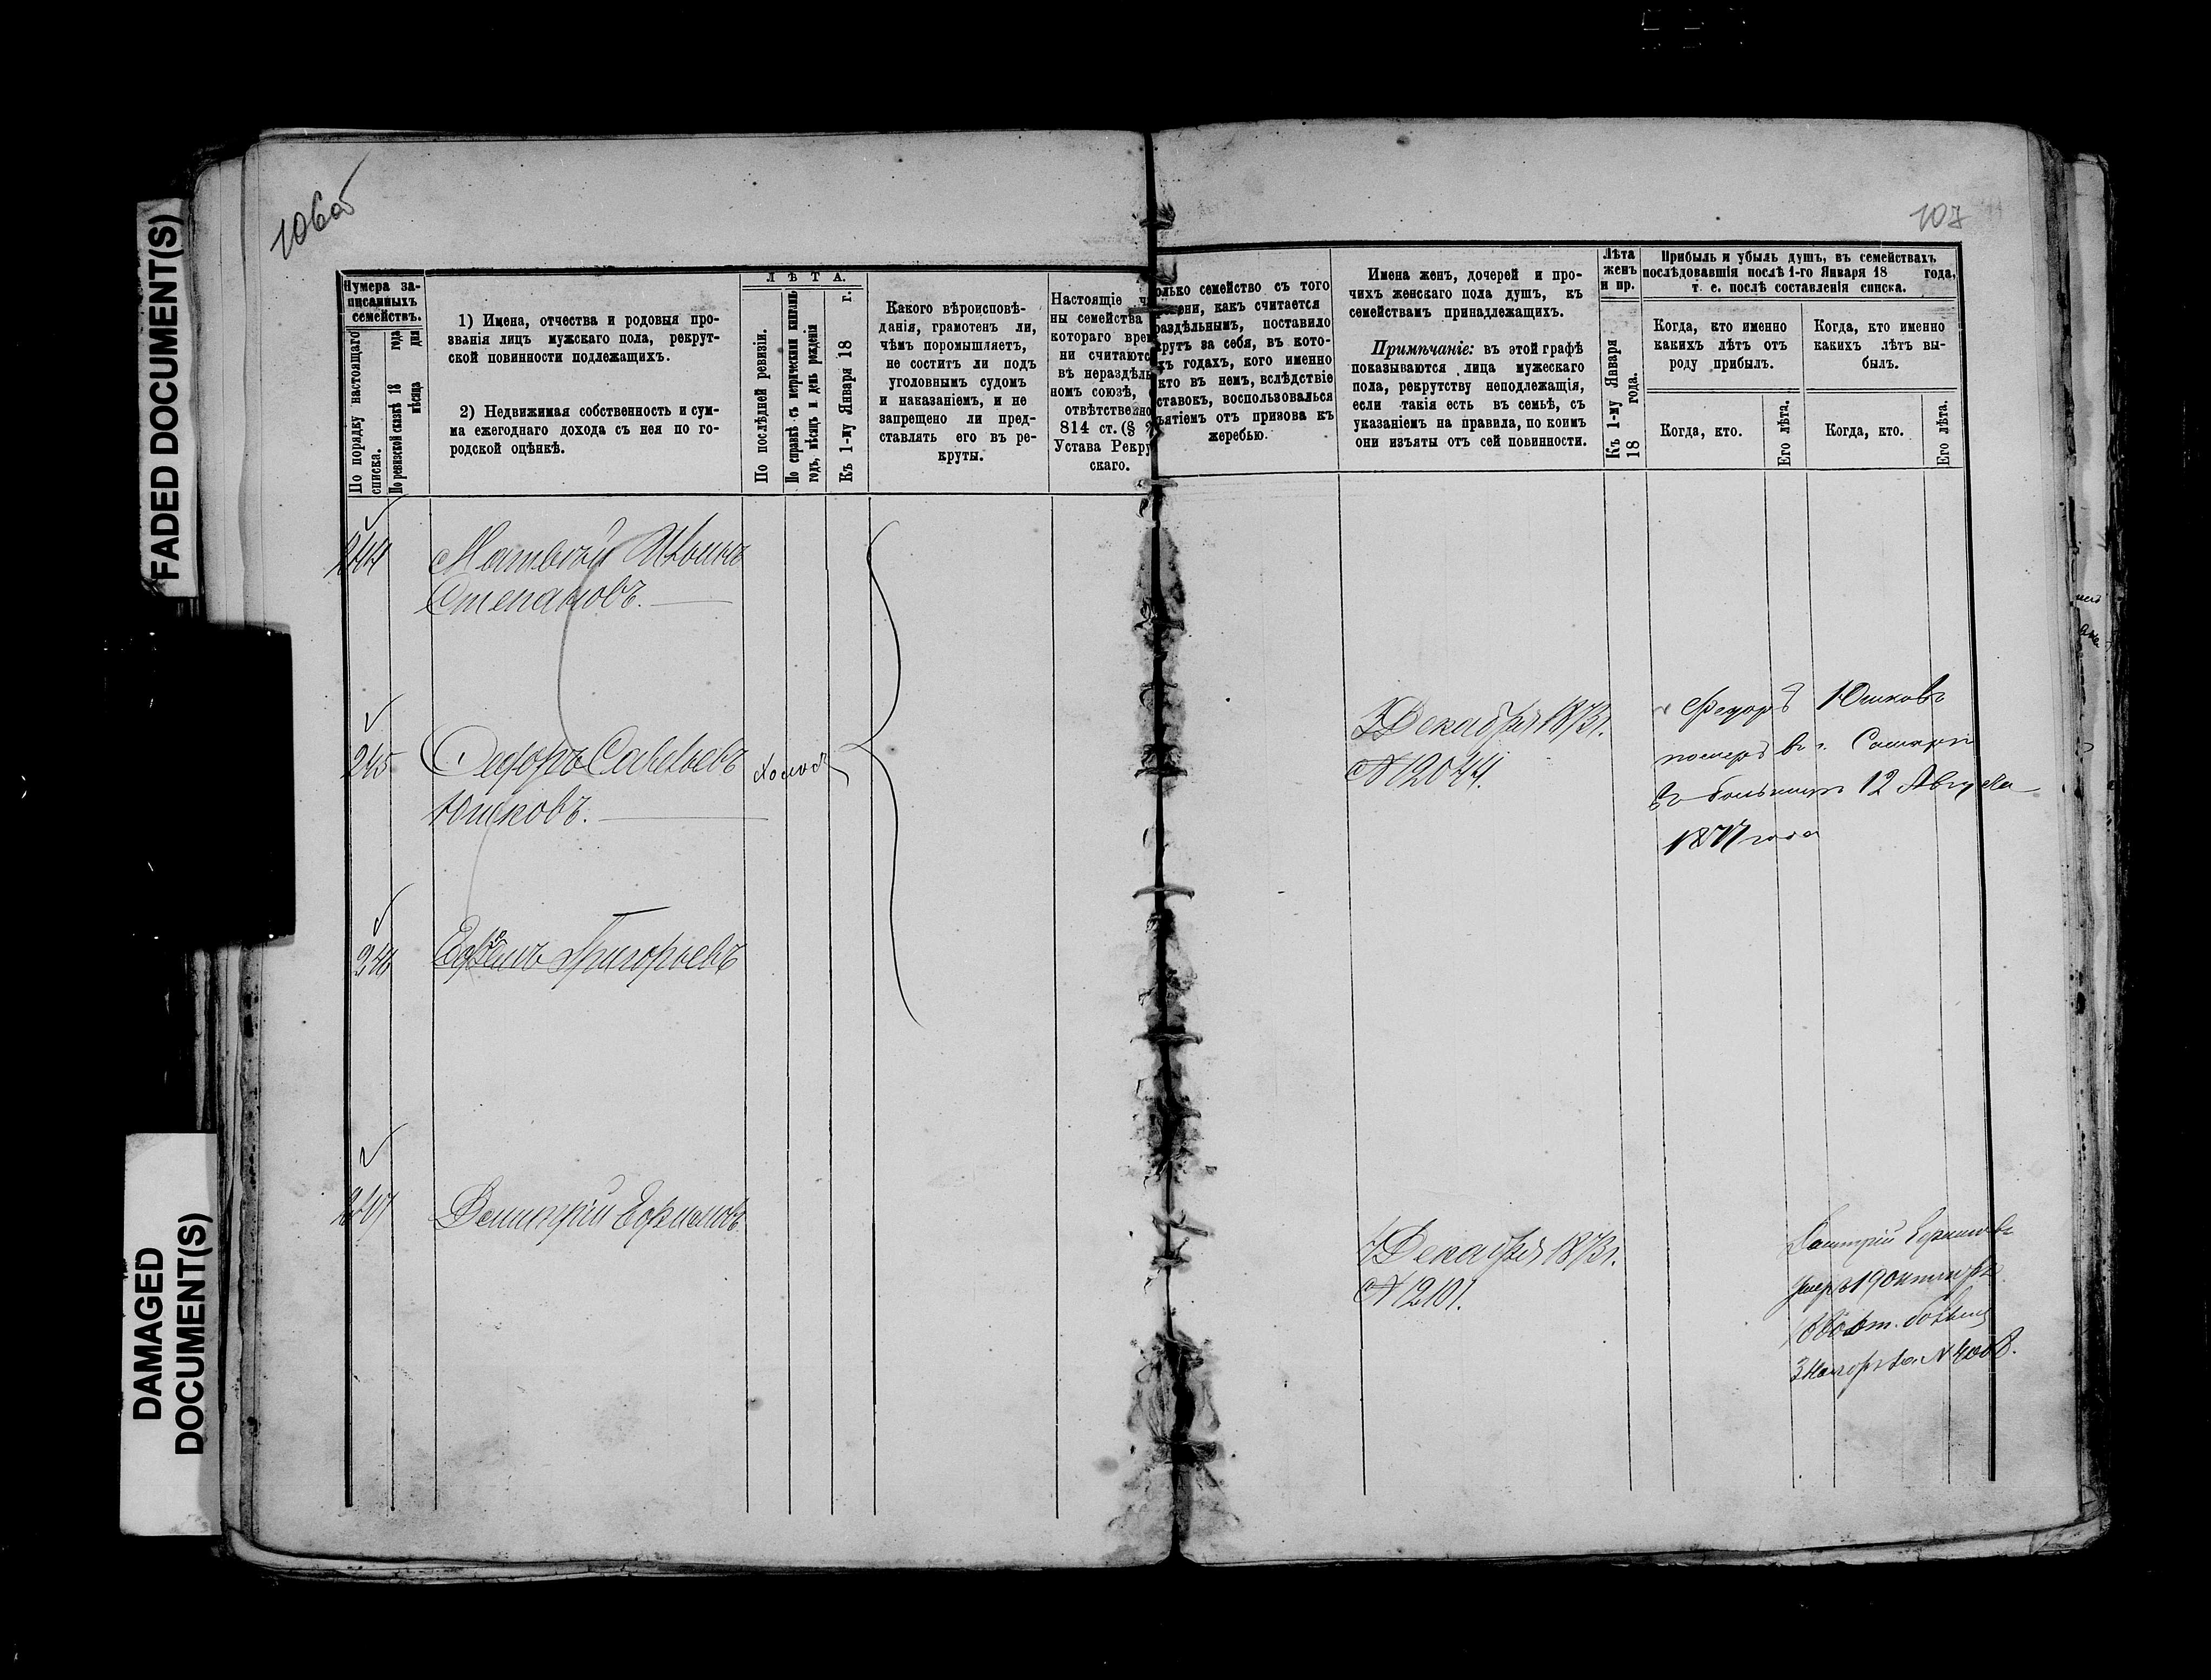 FADED DOCUMENT(S)
DAMAGED
DOCUMENT(S)
106об
107
Нумера за-
писанныхъ
семействъ.
По порядку настоящаго
списка.
По ревизской сказкѣ 18 года
мѣсяца дня
1) Имена, отчества и родовыя про-
званія лицъ мужскаго пола, рекрут-
ской повинности подлежащихъ.
2) Недвижимая собственность и сум-
ма ежегоднаго дохода съ нея по го-
родской оцѣнкѣ.
ЛѢТА.
По послѣдней ревизіи.
По справкѣ съ метрическими книгами
годъ, мѣсяцъ и день рожденія
Къ 1-му Января 18 г.
Какого вѣроисповѣ-
данія, грамотенъ ли,
чѣмъ поромышляетъ,
не соститъ ли подъ
уголовнымъ судомъ
и наказаніемъ, и не
запрещено ли пред-
ставлять его въ ре-
круты.
Настоящіе ч
ны семейства
котораго врем
ни считаютс
въ нераздѣль
номъ союзѣ,
отвѣтственно
814 ст. (§
Устава Рекру
скаго.
олько семейство съ того
ени, какъ считается
раздѣльнымъ, поставило
крутъ за себя, въ кото-
хъ годахъ, кого именно
кто въ немъ, вслѣдствіе
ставокъ, воспользовался
ъятіемъ отъ призова къ
жеребью.
Имена женъ, дочерей и про-
чихъ женскаго пола душъ, къ
семействамъ принадлежащихъ.
Примѣчаніе: въ этой графѣ
показываются лица мужескаго
пола, рекрутству неподлежащія,
если такія есть въ семьѣ, съ
указаніемъ на правила, по коимъ
они изъяты отъ сей повинности.
Лѣта
женъ
и пр.
Къ 1-му Января
18 года.
Прибыль и убыль душъ, въ семействахъ
послѣдовавшія послѣ 1-го Января 18 года,
т. е. послѣ составленія списка.
Когда, кто именно
какихъ лѣтъ отъ
роду прибылъ.
Когда, кто именно
какихъ лѣтъ вы-
былъ.
Когда, кто.
Его лѣта.
Когда, кто.
Его лѣта.
244 Матвѣй Ивановъ
Степановъ.
245 Федоръ Савельевъ холост
Юшковъ.
3 Декабря 1873 г.
№ 12044.
Федоръ Юшковъ
померъ въ г. Самарѣ
въ больницѣ 12 Августа
1877 года
246 Ефимъ Григорьевъ
247 Дмитрій Ефимовъ.
7 Декабря 1873 г.
№ 12101.
Дмитрій Ефимовъ
умеръ 19 октября